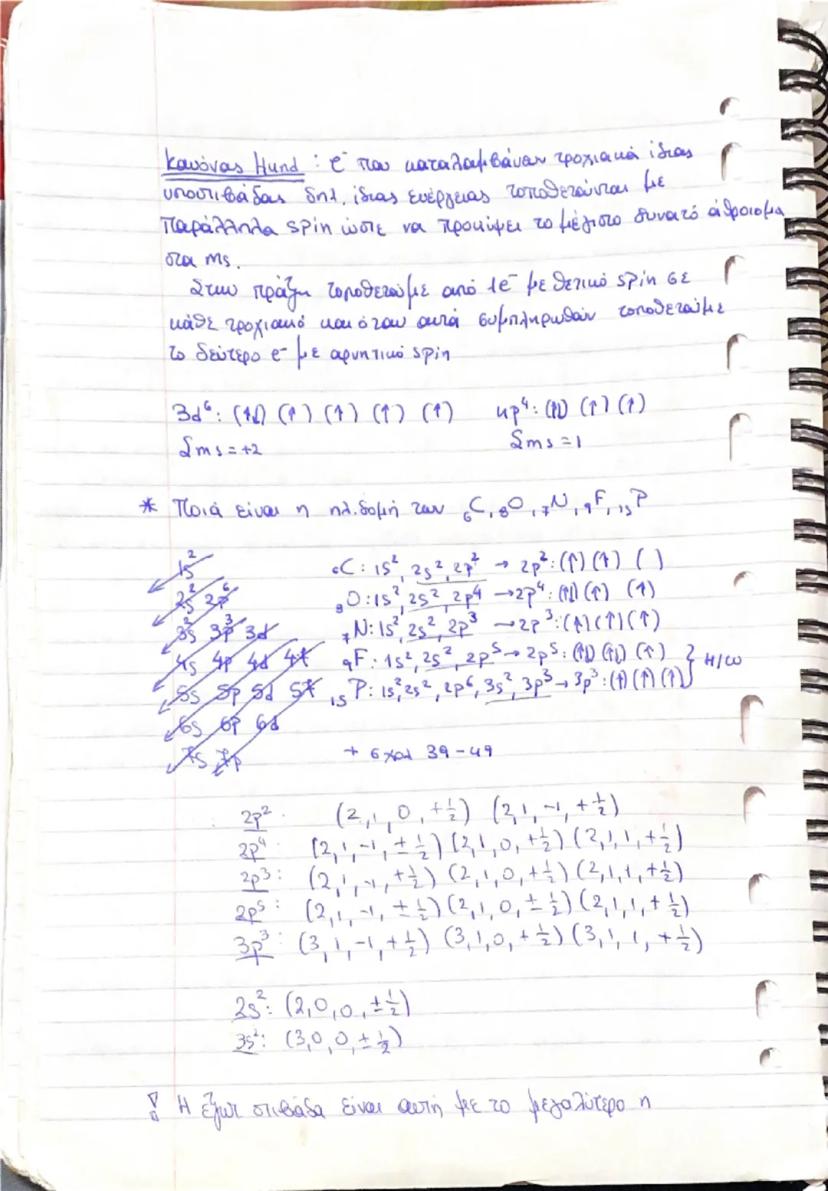 Κανόνας Hund : e⁻ που καταλαμβάνουν τροχιακά ίδιας
υποστιβάδας δηλ. ίδιας ενέργειας τοποθετούνται με
παράλληλα spin ώστε να προκύψει το μέγιστο δυνατό άθροισμα
στα ms.
Στην πράξη τοποθετούμε από 1e⁻ με θετικό spin σε
κάθε τροχιακό και όταν αυτά συμπληρωθούν τοποθετούμε
το δεύτερο e⁻ με αρνητικό spin
3d⁶: (↑↓) (↑) (↑) (↑) (↑) 4p⁴: (↑↓) (↑) (↑)
Σms = +2 Σms = 1
* Ποιά είναι η ηλ. δομή των ₆C, ₈O, ₇N, ₉F, ₁₅P
1s² ₆C: 1s², 2s², 2p² → 2p²: (↑) (↑) ( )
2s² 2p⁶ ₈O: 1s², 2s², 2p⁴ → 2p⁴: (↑↓) (↑) (↑)
3s² 3p³ 3d ₇N: 1s², 2s², 2p³ → 2p³: (↑) (↑) (↑)
4s 4p 4d 4f ₉F: 1s², 2s², 2p⁵ → 2p⁵: (↑↓) (↑↓) (↑) } H/W
5s 5p 5d 5f ₁₅P: 1s² 2s², 2p⁶, 3s², 3p³ → 3p³: (↑) (↑) (↑)
6s 6p 6d
7s 7p + σχολ 39-49
2p² : (2, 1, 0, +½) (2, 1, -1, +½)
2p⁴ : (2, 1, -1, ±½) (2, 1, 0, +½) (2, 1, 1, +½)
2p³ : (2, 1, -1, +½) (2, 1, 0, +½) (2, 1, 1, +½)
2p⁵ : (2, 1, -1, ±½) (2, 1, 0, ±½) (2, 1, 1, +½)
3p³ : (3, 1, -1, +½) (3, 1, 0, +½) (3, 1, 1, +½)
2s²: (2, 0, 0, ±½)
3s²: (3, 0, 0, ±½)
! Η εξωτ στιβάδα είναι αυτή με το μεγαλύτερο n